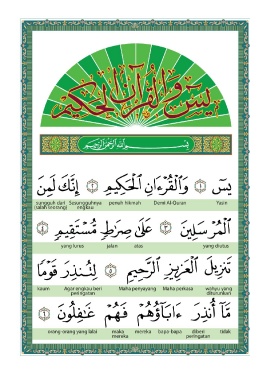 يس والقرآن الحكيم
بسم الله الرحمن الرحيم
يسٓ ۝١ وَٱلْقُرْءَانِ ٱلْحَكِيمِ ۝٢ إِنَّكَ لَمِنَ
sungguh dari (salah seorang) Sesungguhnya engkau penuh hikmah Demi Al-Quran Yasin
ٱلْمُرْسَلِينَ ۝٣ عَلَىٰ صِرَٰطٍ مُّسْتَقِيمٍ ۝٤
yang lurus jalan atas yang diutus
تَنزِيلَ ٱلْعَزِيزِ ٱلرَّحِيمِ ۝٥ لِتُنذِرَ قَوْمًا
kaum Agar engkau beri peringatan Maha penyayang Maha perkasa wahyu yang diturunkan
مَّآ أُنذِرَ ءَابَآؤُهُمْ فَهُمْ غَٰفِلُونَ ۝٦
orang-orang yang lalai maka mereka mereka bapa-bapa diberi peringatan tidak